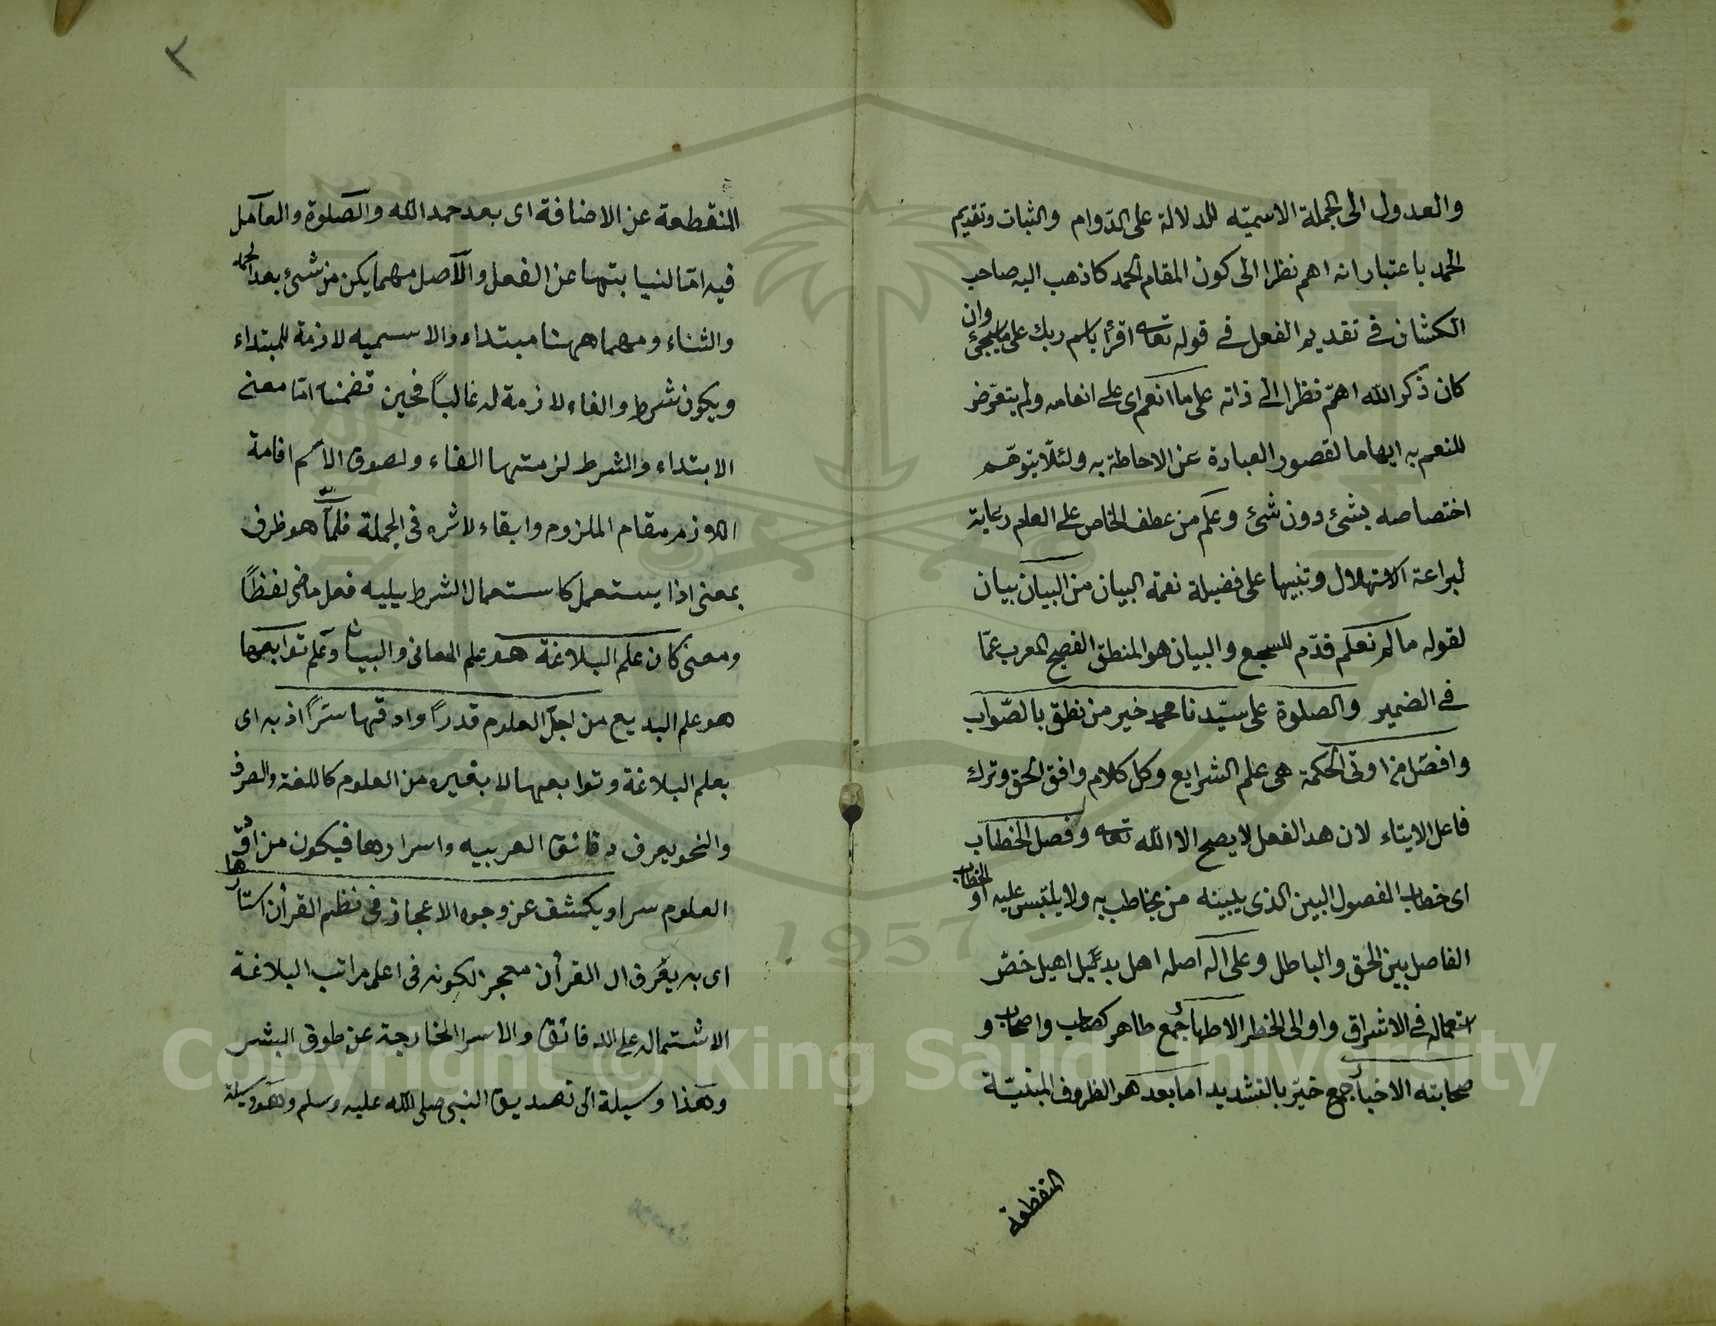 والعدول الى الجملة الاسميّه للدلالة على الدّوام والثبات وتقديم
الحمد باعتبار انه اهم نظرا الى كون المقام الحمد كما ذهب اليه صاحب
الكشاف فى تقديم الفعل فى قوله تعه اقرأ باسم ربك على ما سيجئ وان
كان ذكر الله اهمّ نظرا الى ذاته على ما انعم اى على انعامه ولم يتعرّض
للنعم به ايهاما لقصور العبارة عن الاحاطة به ولئلّا يتوهّم
اختصاصه بشئ دون شئ وعلم من عطف الخاص على العام رعاية
لبراعة الاستهلال وتنبيها على فضيلة نعمة البيان من البيان بيان
لقوله ما لم نعلم قدّم للسجع والبيان هو المنطق الفصيح المعرب عمّا
فى الضمير والصلوة على سيّدنا محمد خير من نطق بالصّواب
وافضل من اوتى الحكمة هى علم الشرايع وكل كلام وافق الحق وترك
فاعل الايتاء لان هد الفعل لا يصح الا الله تعه وفصل الخطاب
اى خطاب المفصول البين الذى يبينه من يخاطب به ولا يلتبس عليه او الخطاب
الفاصل بين الحق والباطل وعلى اله اصله اهل بدليل اهيل خصّ
استعماله فى الاشراق واولى الخطر الاطها جمع طاهر كصاب واصحاب و
صحابته الاخيا جمع خيّر بالتشديد اما بعد هو الظروف المبنيّة
المنقطعة
٢
المنقطعة عن الاضافة اى بعد حمد الله والصلوة والعامل
فيه امّا لنيابتها عن الفعل والاصل مهما يكن من شئ بعد الحمد
والثناء ومهما ههنا مبتداء والاسميه لازمة للمبتداء
ويكون شرط والفاء لازمة له غالباً فحين تضمنه امّا معنى
الابتداء والشرط لزمتها الفاء ولصوق الاسم اقامة
اللازم مقام الملزوم وابقاء لاثره فى الجملة فلمّا هو ظرف
بمعنى اذا يستعمل كاستعمال الشرط يليه فعل ماض لفظاً
ومعنى كان علم البلاغة هو علم المعانى والبيان وعلم توابعها
هو علم البديع من اجلّ العلوم قدراً وادقها سرّاً اذ به اى
بعلم البلاغة وتوابعها لا بغيره من العلوم كاللغة والصرف
والنحو يعرف دقائق العربيه واسرارها فيكون من ادق
العلوم سرا ويكشف عن وجوه الاعجاز فى نظم القرأن استارها
اى به يعرف ال القرأن معجز لكونه فى اعلى مراتب البلاغة
الاشتماله على الدقائق والاسرا الخارجة عن طوق البشر
وهذا وسيلة الى تصديق النبى صلى الله عليه وسلم وهو وسيلة
1957
Copyright © King Saud University